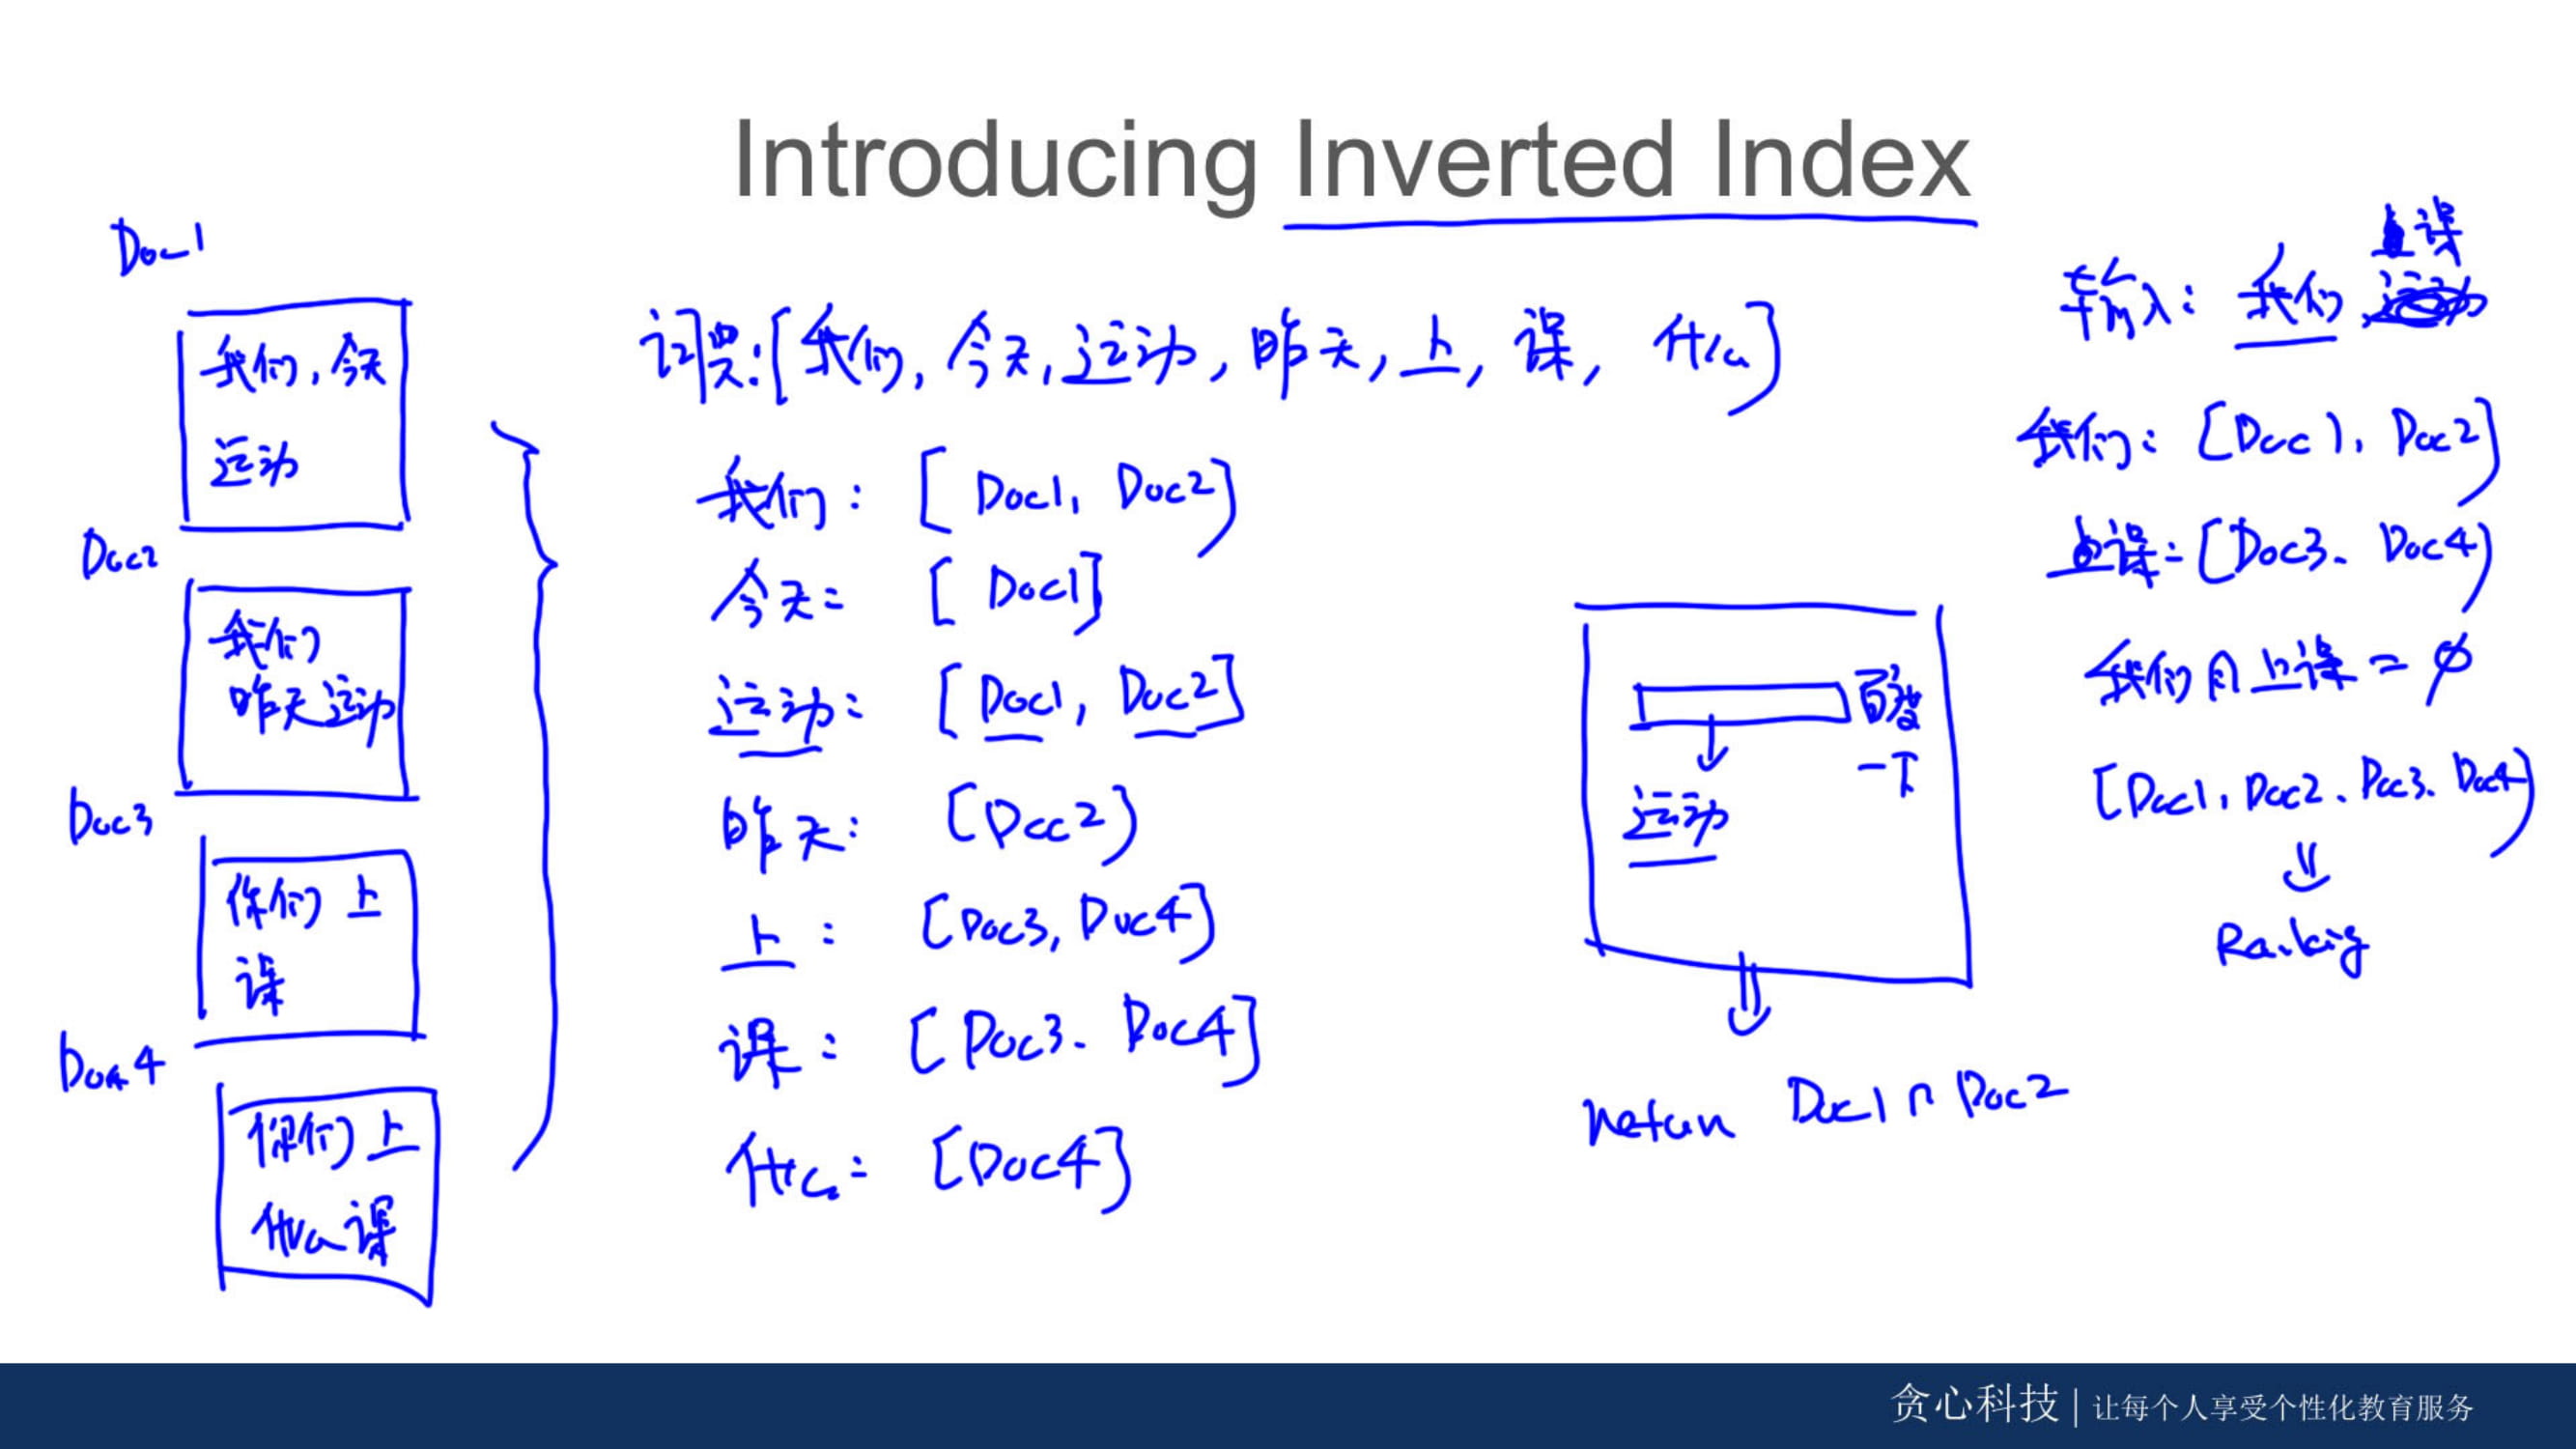 Introducing Inverted Index
Doc1
我们,今天
运动
Doc2
我们
昨天运动
Doc3
你们 上
课
Doc4
你们上
什么课
词典:[我们,今天,运动,昨天,上,课,什么]
我们: [Doc1, Doc2]
今天: [Doc1]
运动: [Doc1, Doc2]
昨天: [Doc2]
上: [Doc3, Doc4]
课: [Doc3、Doc4]
什么: [Doc4]
百度
一下
运动
return Doc1∩Doc2
上课
输入: 我们
我们: [Doc1, Doc2]
上课: [Doc3、Doc4]
我们∩上课=∅
[Doc1, Doc2、Doc3、Doc4]
Ranking
贪心科技 | 让每个人享受个性化教育服务